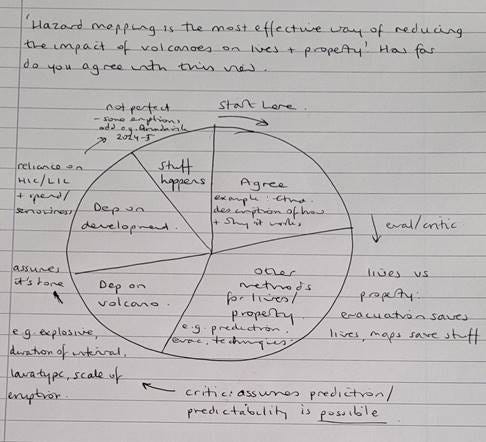 'Hazard mapping is the most effective way of reducing
the impact of volcanoes on lives + property'. How far
do you agree with this view.
Start here.
not perfect
- some eruptions
odd e.g.
2024-5
stuff
happens
Agree
example: Etna.
description of how
+ why it works
eval/critic
lives vs
property:
evacuation saves
lives, maps save stuff
other
methods
for lives/
property.
e.g. prediction.
evac, techniques.
critic: assumes prediction/
predictability is possible.
Dep on
volcano.
e.g. explosive,
duration of interval,
lava type, scale of
eruption.
assumes
it's done
Dep on
development.
reliance on
HIC/LIC
+ spend/
seriousness